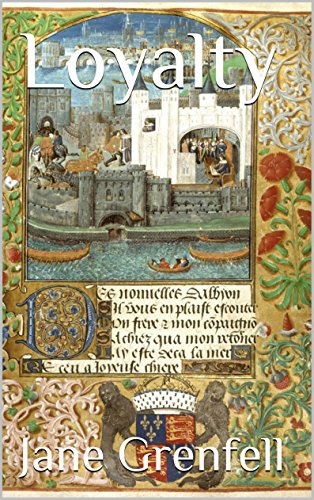 Loyalty
Des nouuelles Dalbyon
Sil vous en plaist escouter
Mon frere & mon cōpaignō
Sachiez qua mon retorner
Jay este deca la mer
Receu a Joyeuse chiere
Jane Grenfell